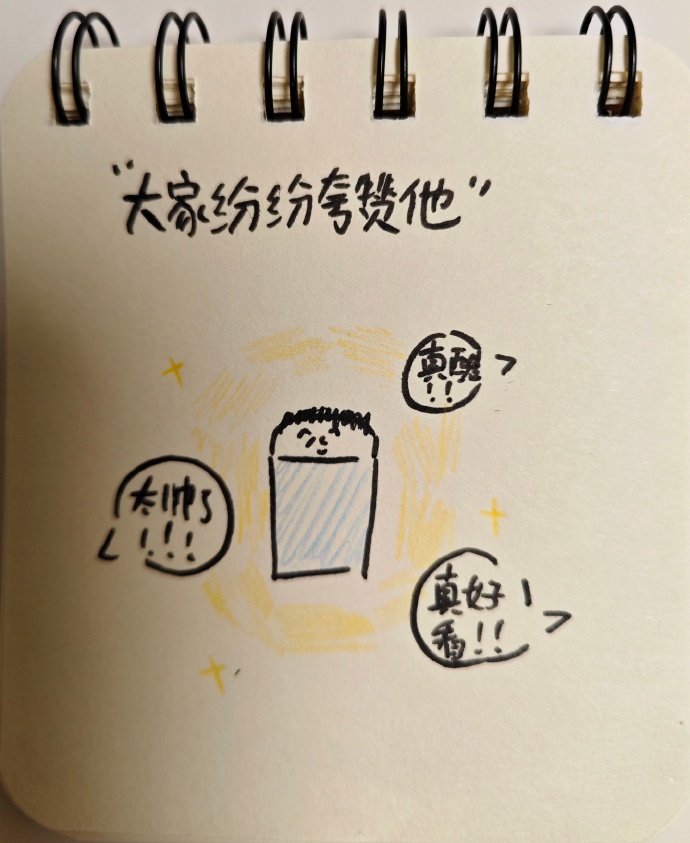 "大家纷纷夸赞他"
真醒
!!
太帅了
!!!
真好
看!!